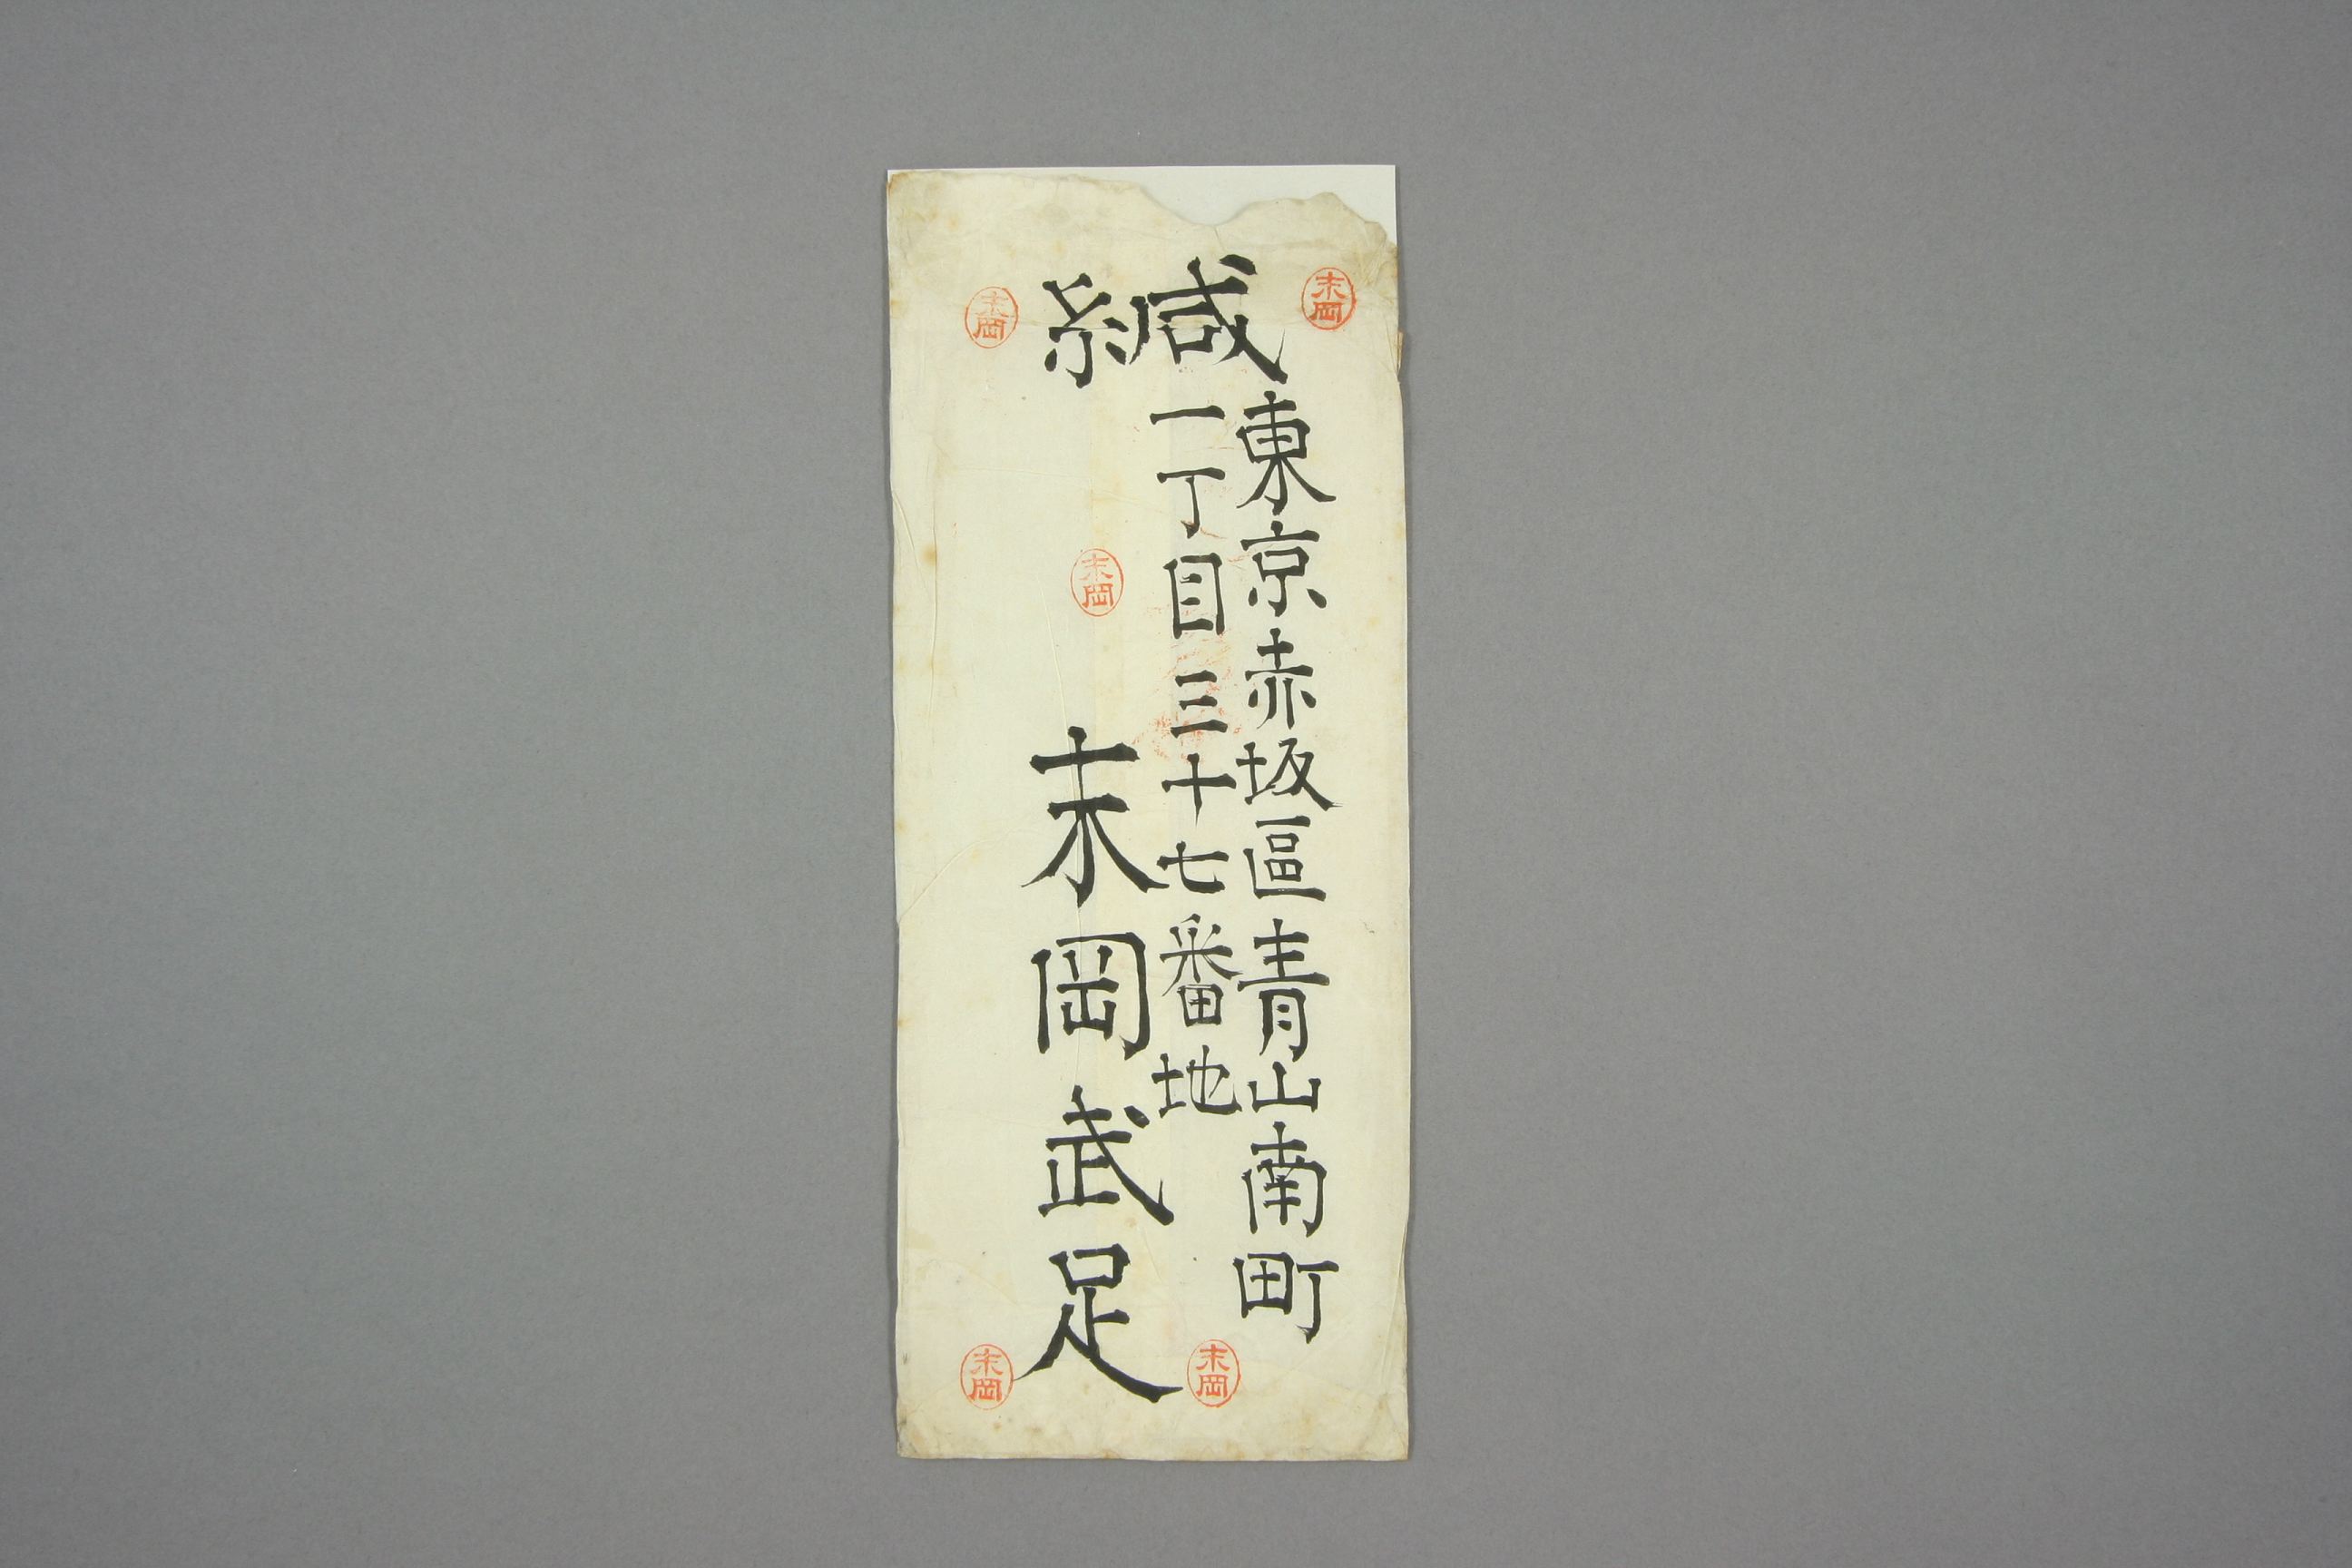 緘
東京赤坂區青山南町
一丁目三十七番地
末岡武足
末岡
末岡
末岡
末岡
末岡